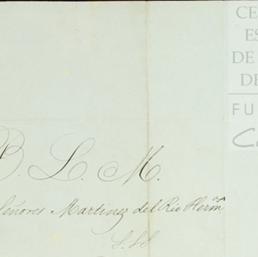 CE
ES
DE
DE
FU
B. L. M.
Señores Martinez del Rio Herm^s
S. S. S.